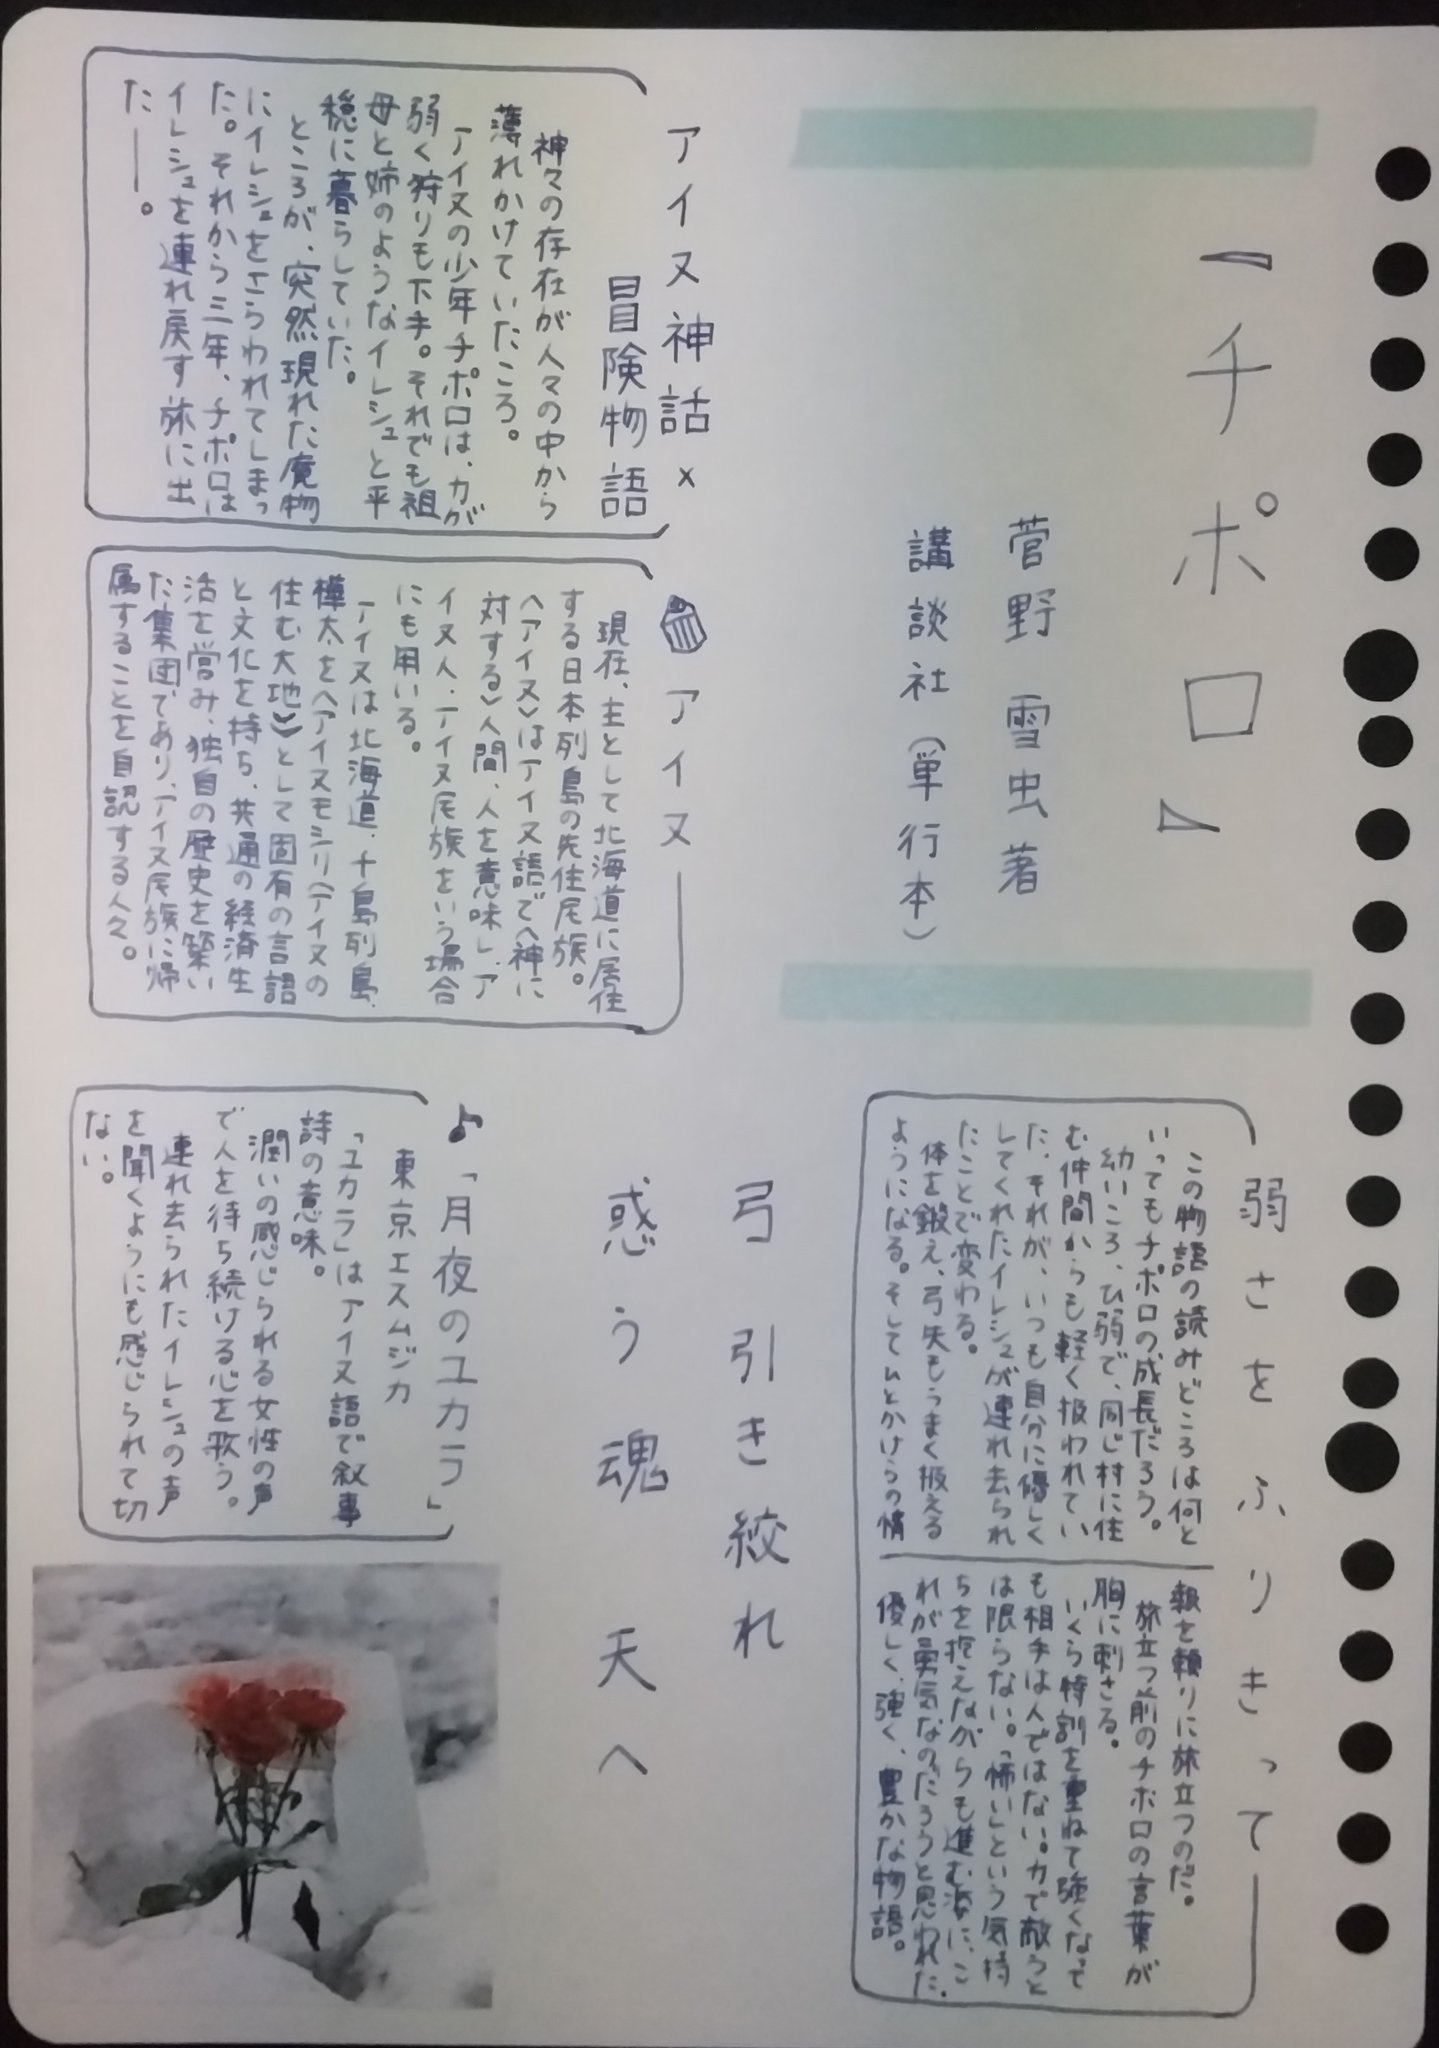 『チポロ』
菅野 雪虫 著
講談社(単行本)
アイヌ神話×
冒険物語
神々の存在が人々の中から
薄れかけていたころ。
アイヌの少年チポロは、力が
弱く狩りも下手。それでも祖
母と姉のようなイレシュと平
穏に暮らしていた。
ところが、突然現れた魔物
にイレシュをさらわれてしまっ
た。それから三年、チポロは
イレシュを連れ戻す旅に出
た――。
アイヌ
現在、主として北海道に居住
する日本列島の先住民族。
〈アイヌ〉はアイヌ語で〈神に
対する〉人間、人を意味し、ア
イヌ人、アイヌ民族をいう場合
にも用いる。
アイヌは北海道、千島列島、
樺太を〈アイヌモシリ(アイヌの
住む大地)〉として固有の言語
と文化を持ち、共通の経済生
活を営み、独自の歴史を築い
た集団であり、アイヌ民族に帰
属することを自認する人々。
弱さをふりきって
この物語の読みどころは何と
いってもチポロの成長だろう。
幼いころ、ひ弱で、同じ村に住
む仲間からも軽く扱われてい
た。それが、いつも自分に優しく
してくれたイレシュが連れ去られ
たことで変わる。
体を鍛え、弓矢もうまく扱える
ようになる。そしてひとかけらの情
報を頼りに旅立つのだ。
旅立つ前のチポロの言葉が
胸に刺さる。
いくら特訓を重ねて強くなって
も相手は人ではない。力で敵うと
は限らない。「怖い」という気持
ちを抱えながらも進む姿に、こ
れが勇気なのだろうと思われた。
優しく、強く、豊かな物語。
弓 引き絞れ
惑う魂 天へ
♪「月夜のユカラ」
東京エスムジカ
「ユカラ」はアイヌ語で叙事
詩の意味。
潤いの感じられる女性の声
で人を待ち続ける心を歌う。
連れ去られたイレシュの声
を聞くようにも感じられて切
ない。